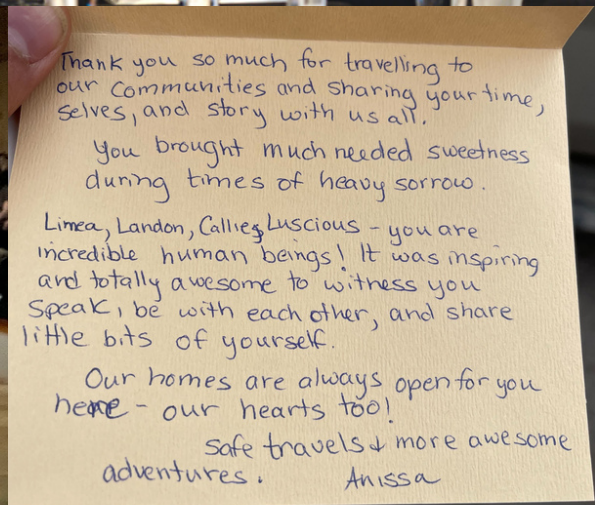 Thank you so much for travelling to
our communities and sharing your time,
selves, and story with us all.
You brought much needed sweetness
during times of heavy sorrow.
Limea, Landon, Callie & Luscious - you are
incredible human beings! It was inspiring
and totally awesome to witness you
speak, be with each other, and share
little bits of yourself.
Our homes are always open for you
here - our hearts too!
Safe travels & more awesome
adventures. Anissa